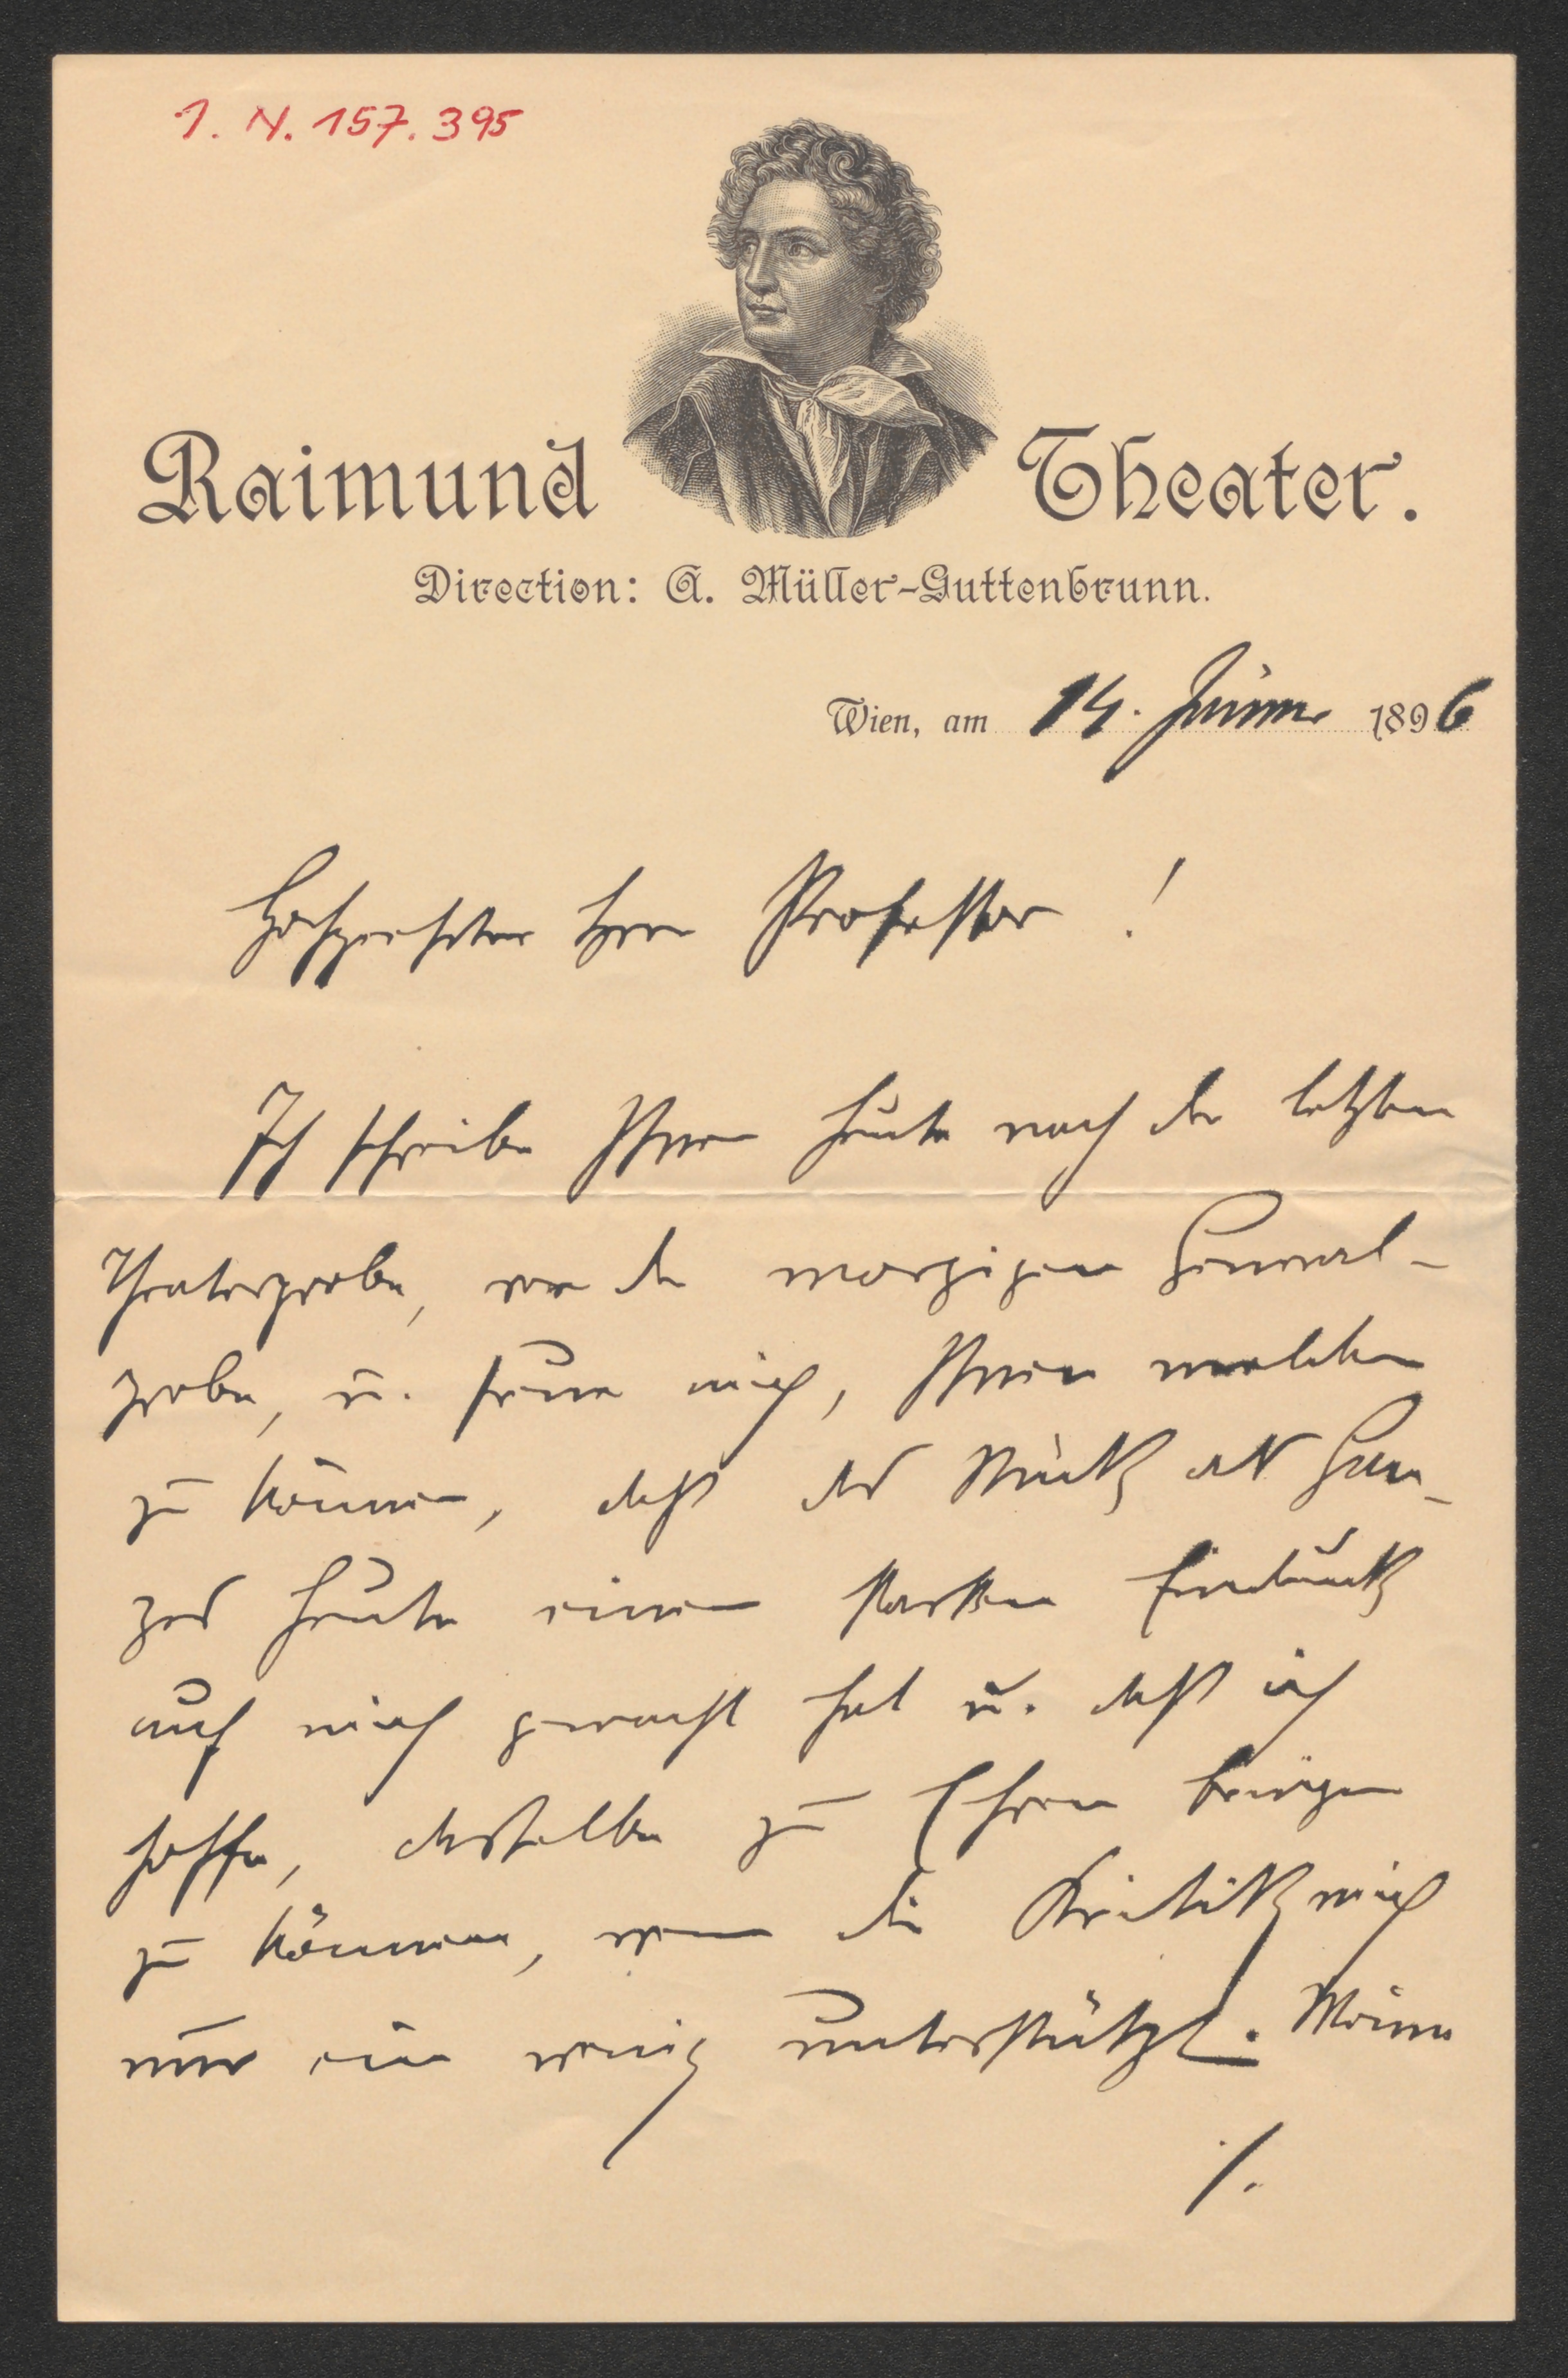 I. N. 157.395
Raimund Theater.
Direction: A. Müller-Guttenbrunn.
Wien, am 14. Jänner 1896
Hochgeehrter Herr Professor!
Ich schreibe Ihnen heute nach der letzten
Theaterprobe, vor der morgigen General-
probe, u. freue mich, Ihnen melden
zu können, daß das Stück als Gan-
zes heute einen starken Eindruck
auf mich gemacht hat u. daß ich
hoffe, dasselbe zu Ehren bringen
zu können, wenn die Kritik mich
nur ein wenig unterstützt. Meine
./.